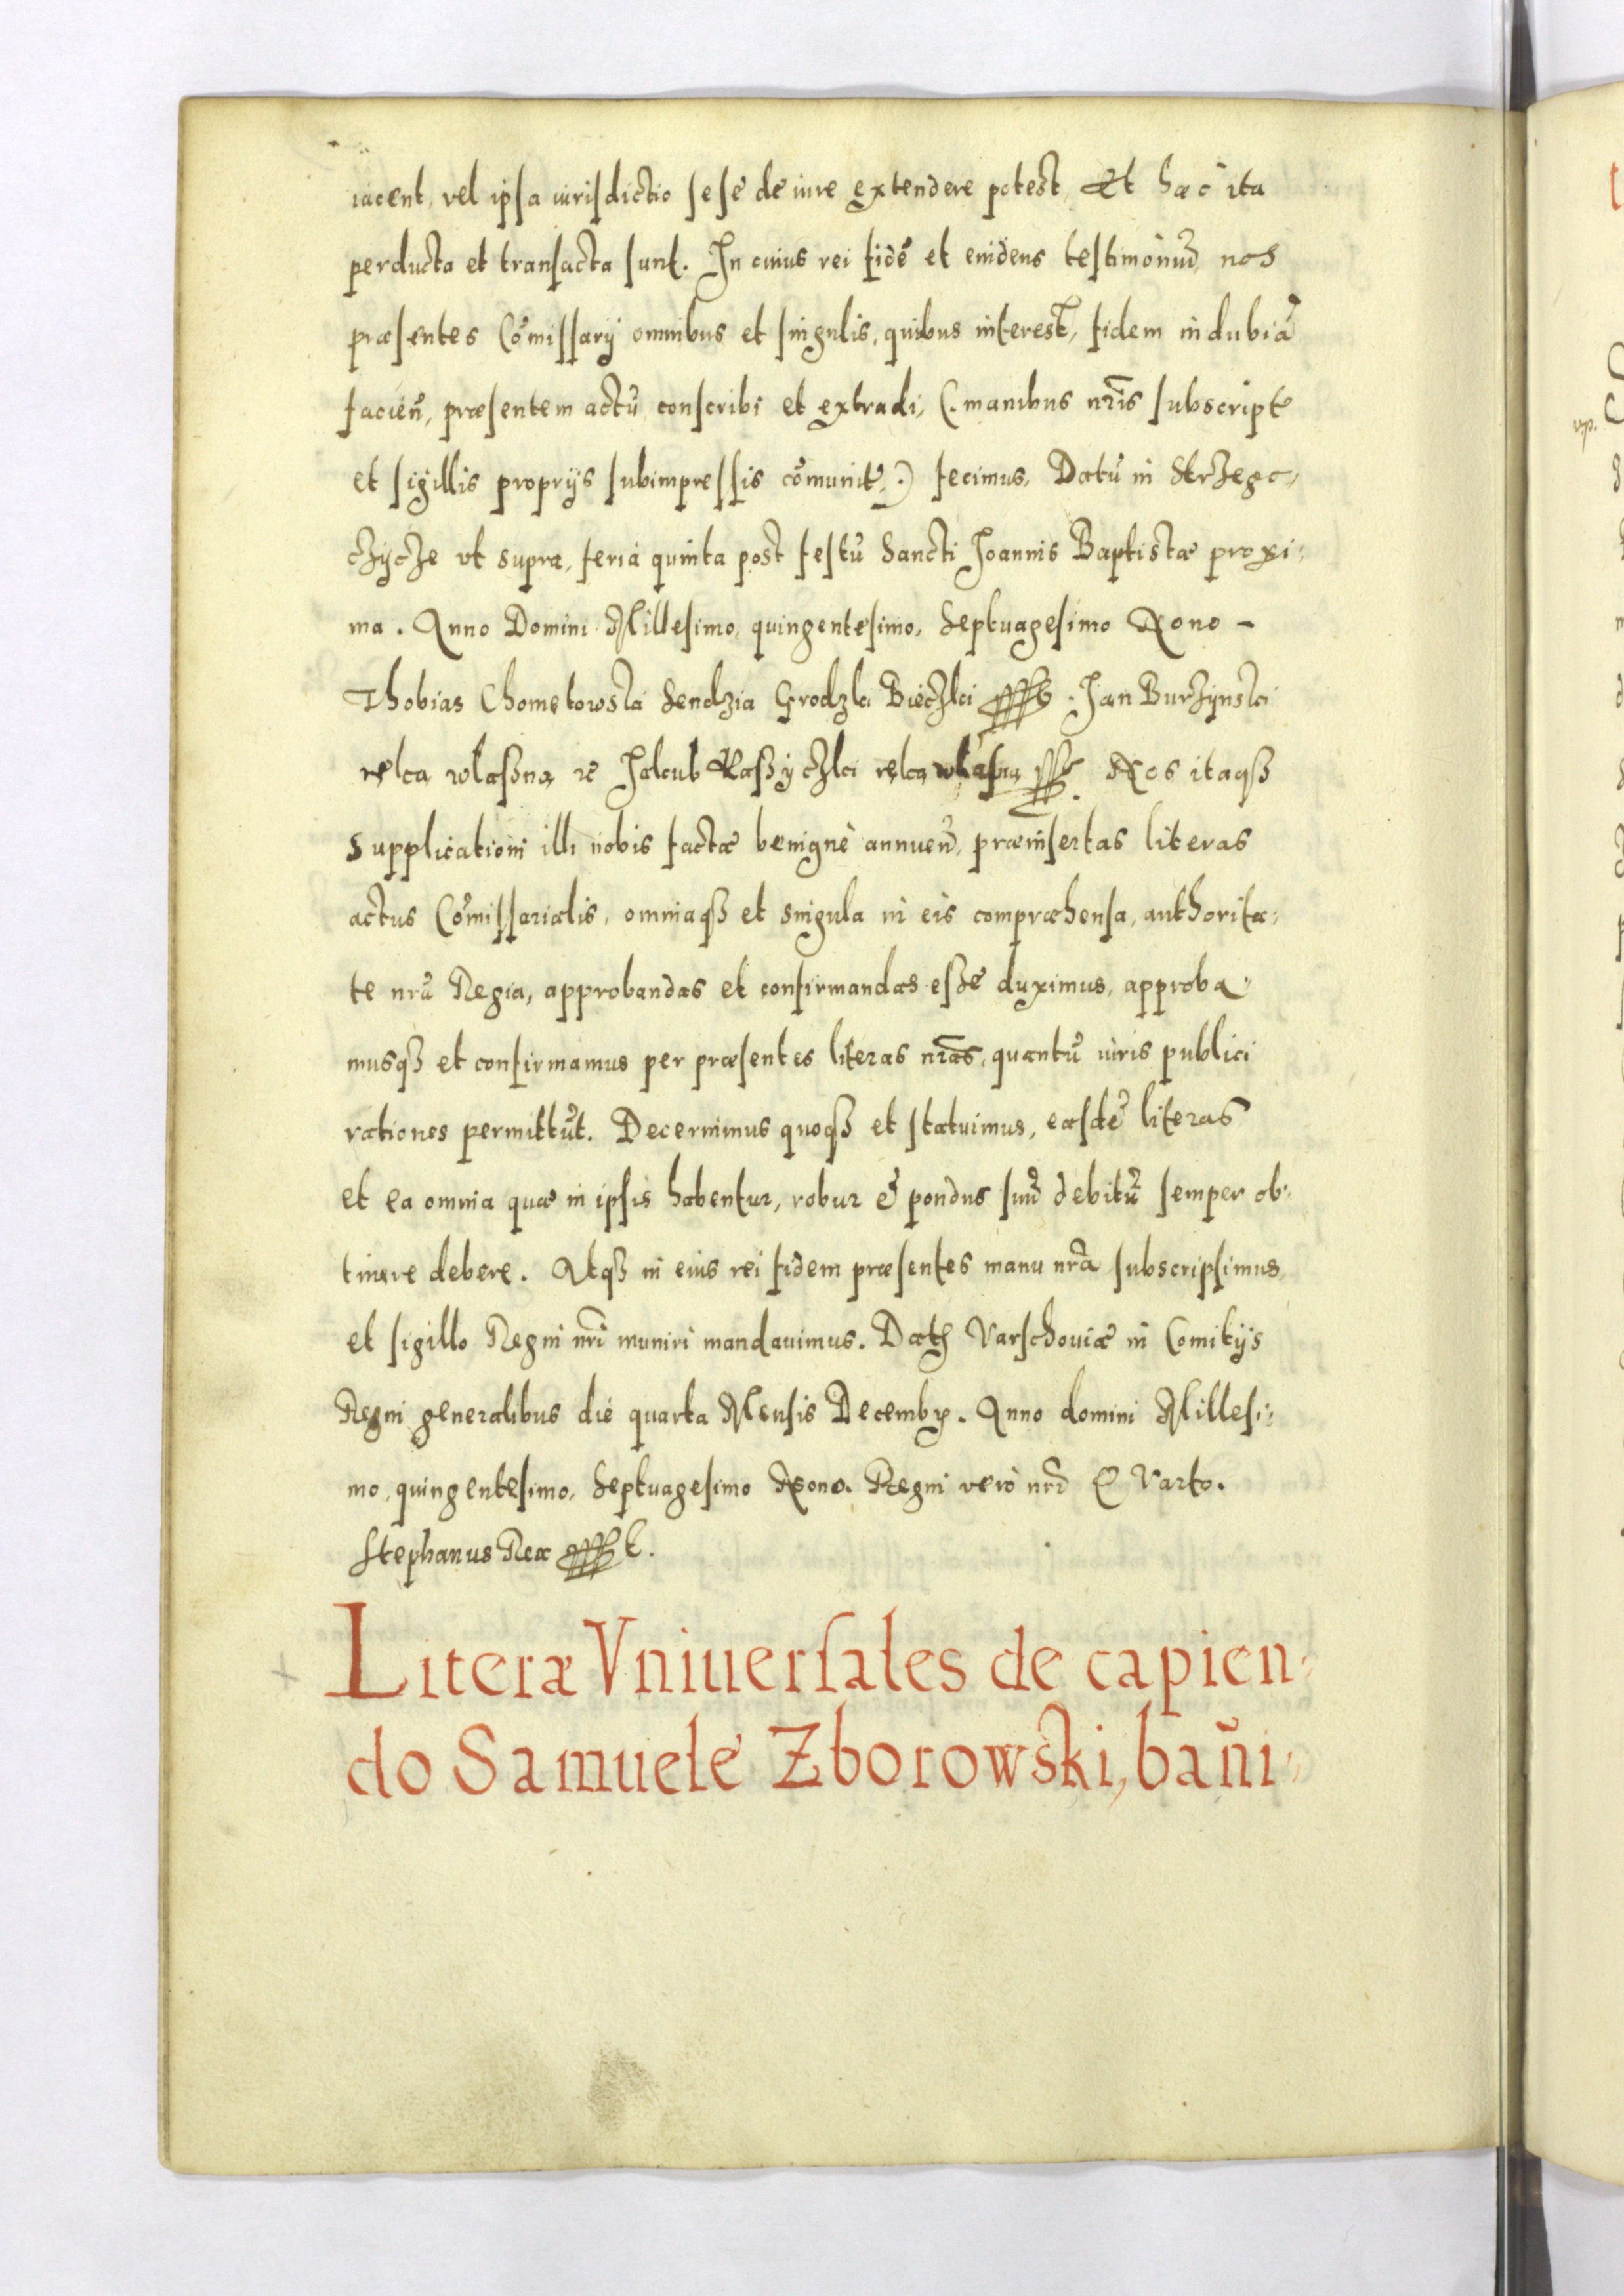 iacent, vel ipsa iurisdictio sese de iure extendere potest, Et hæc ita
perducta et transacta sunt. In cuius rei fidē et euidens testimoniū, nos
præsentes Cōmissarÿ omnibus et singulis, quibus interest, fidem indubiā
facień, præsentem actū conscribi et extradi, (. manibus nr̄is subscript
et sigillis proprÿs subimpressis cōmunit,.) fecimus, Datū in Strzego,
czÿcze vt supra, feria quinta post festū Sancti Joannis Baptistæ proxi,
ma. Anno Domini Millesimo, quingentesimo, Septuagesimo Nono –
Thobias Chomętowski Sendzia Grodzki Bieczki. Jan Burzÿnski
ręką wlaßną Jakub ręką własną Nos itaqȝ
supplicationi illi nobis factæ benignè annueń, præinsertas literas
actus Cōmissarialis, omniaqȝ et singula in eis compræhensa, authorita,
te nrā Regia, approbandas et confirmandas esse duximus, approba,
musqȝ et confirmamus per præsentes literas nr̄as, quantū iuris publici
rationes permittūt. Decernimus quoqȝ et statuimus, easdē literas
et ea omnia quæ in ipsis habentur, robur & pondus suū debitū semper ob,
tinere debere. Atqȝ in eius rei fidem præsentes manu nrā subscripsimus,
et sigillo Regni nrī muniri mandauimus. Dat Varschouiæ in Comitÿs
Regni generalibus die quarta Mensis Decembr. Anno domini Millesi,
mo, quingentesimo, Septuagesimo Nono. Regni verò nrī Quarto.
Stephanus Rex
Literæ Vniuersales de capien,
do Samuele Zborowski, bañi,